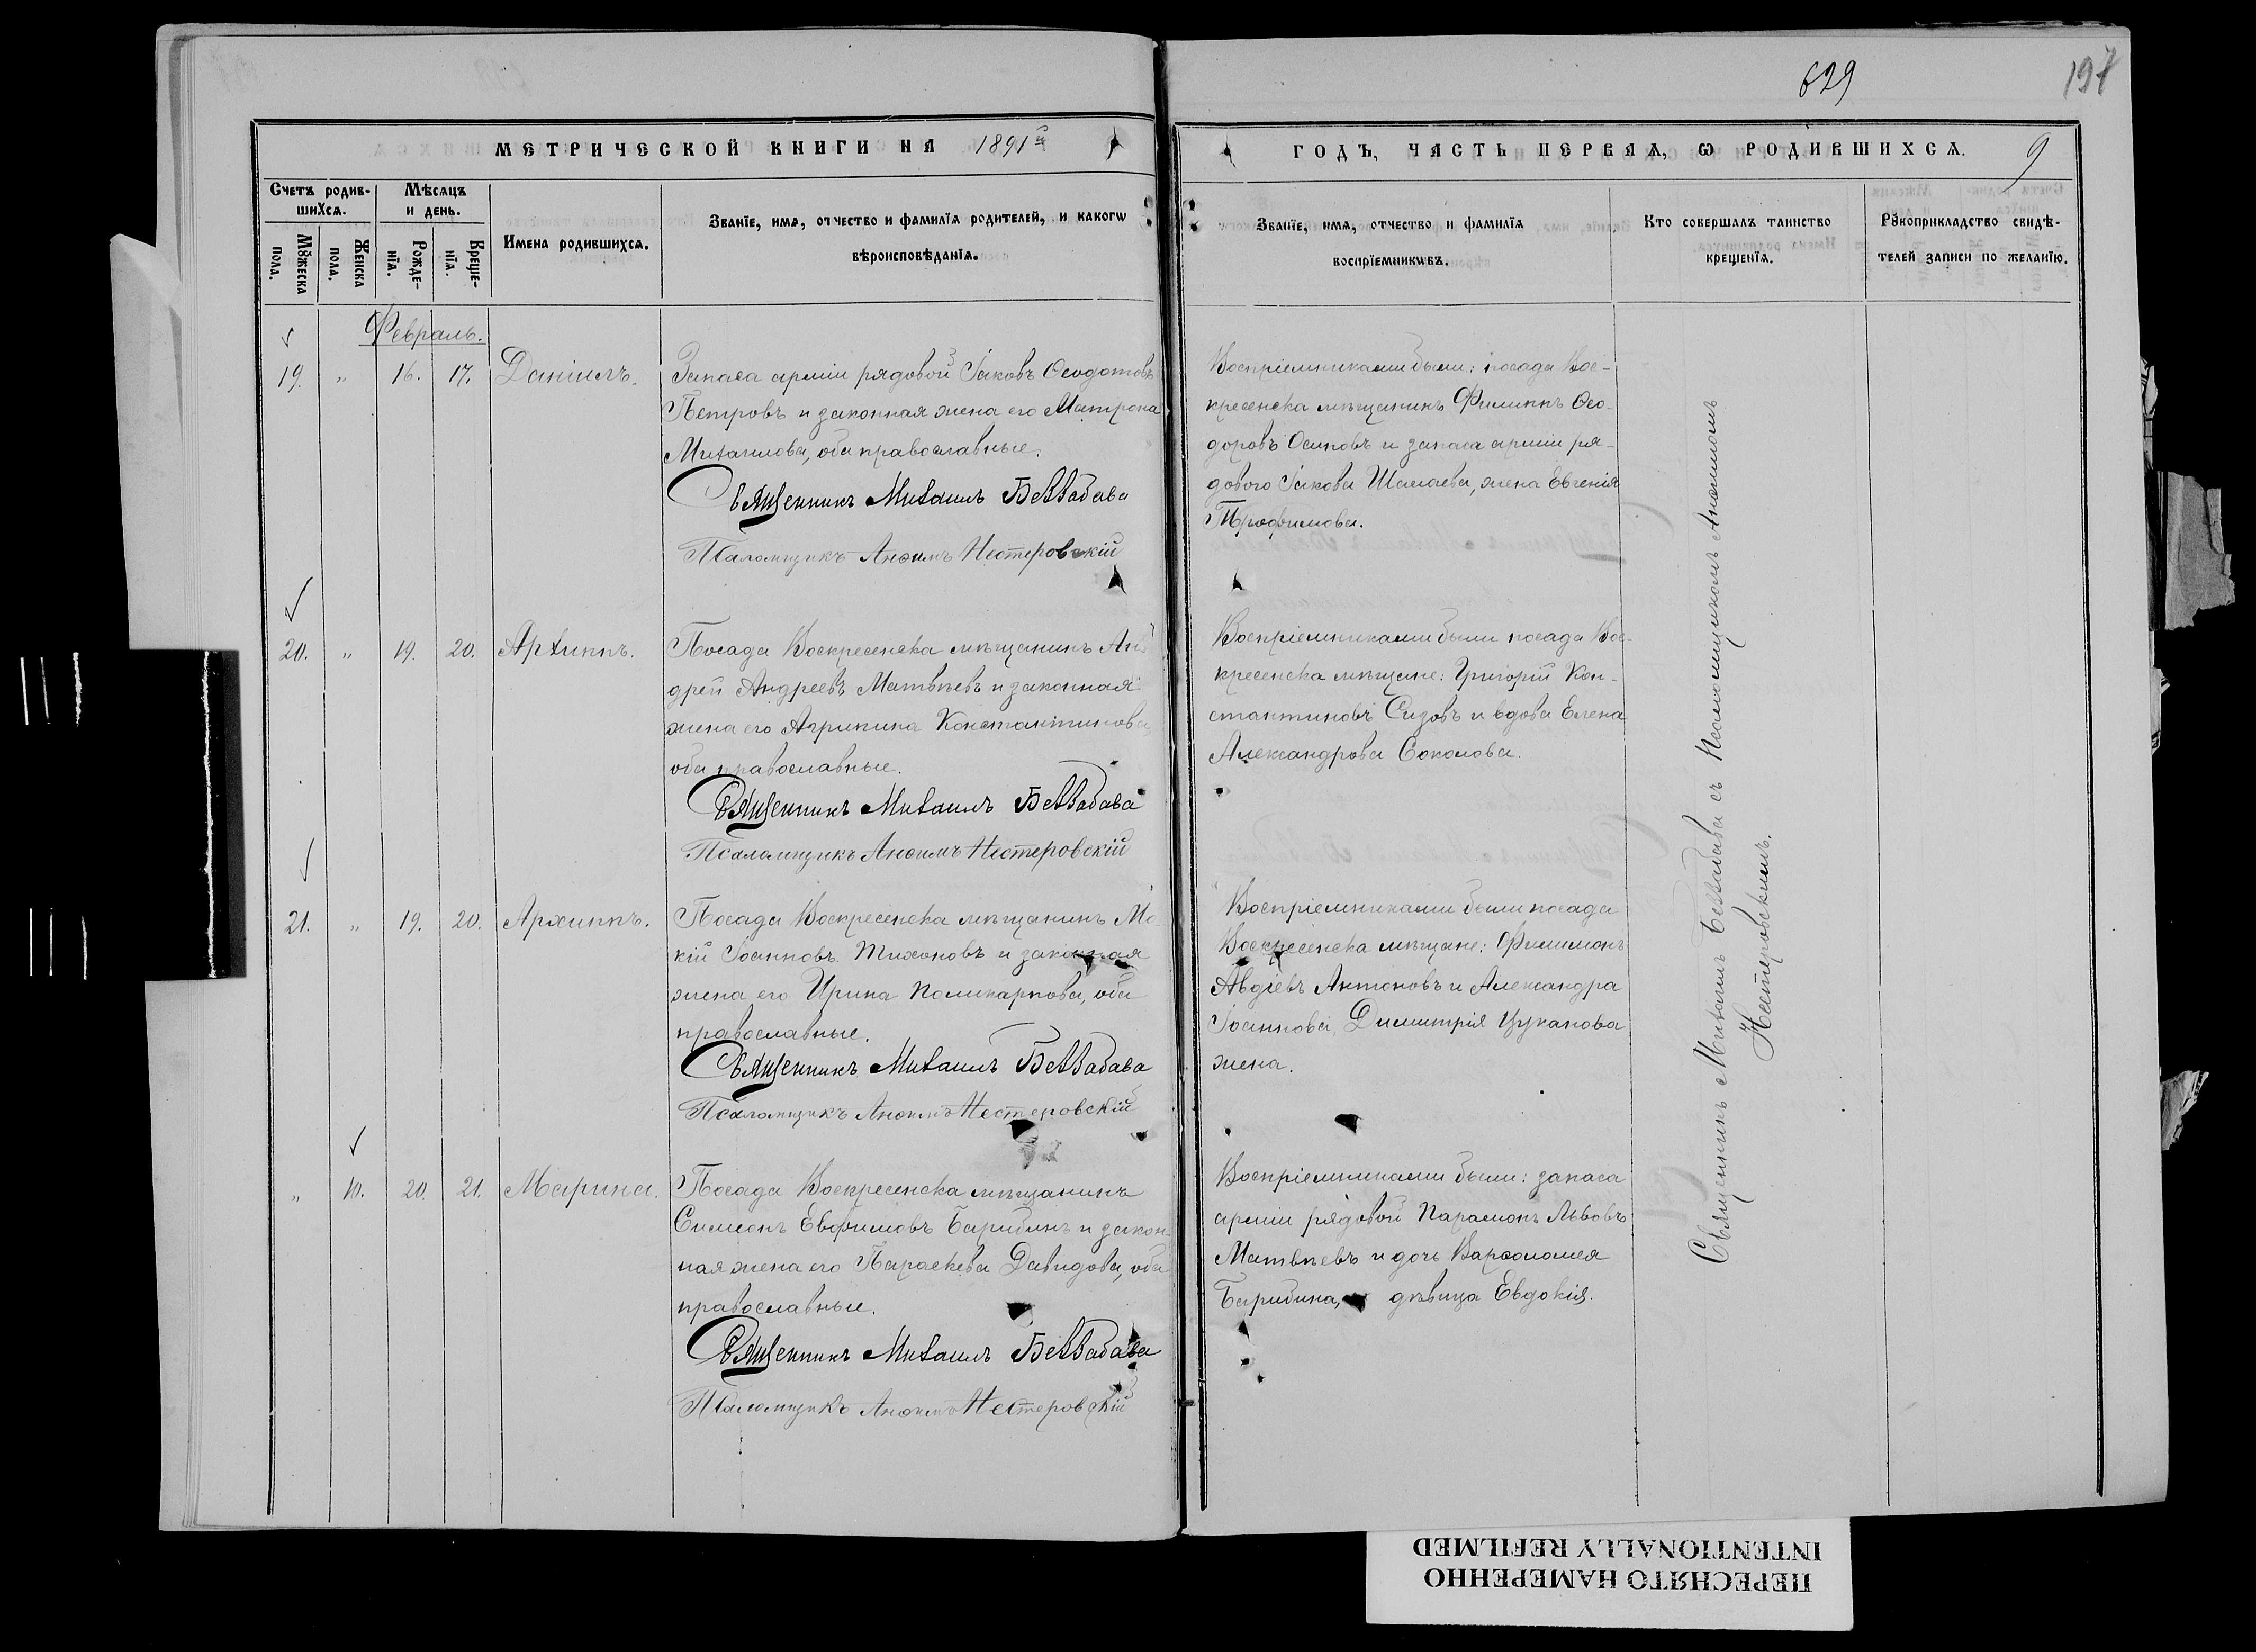 629
197
МЕТРИЧЕСКОЙ КНИГИ НА 1891й
ГОДЪ, ЧАСТЬ ПЕРВАЯ, Ѡ РОДИВШИХСЯ.
9
Счетъ родив-
шихся.
Мѣсяцъ
и день.
Мꙋжеска
пола.
Женска
пола.
Рожде-
нїя.
Креще-
нїя.
Имена родившихся.
Званїе, имя, отчество и фамилїя родителей, и какогѡ
вѣроисповѣданїя.
Званїе, имя, отчество и фамилїя
воспрїемникѡвъ.
Кто совершалъ таинство
крещенїя.
Рꙋкоприкладство свидѣ-
телей записи по желанїю.
Февраль.
19. „ 16. 17. Даніилъ.
Запаса арміи рядовой Іаковъ Ѳеодотовъ
Петровъ и законная жена его Матрона
Михаилова, оба православные.
Священникъ Михаилъ Беззабава
Псаломщикъ Анѳимъ Нестеровскій
Воспріемниками были: посада Вос-
кресенска мѣщанинъ Филиппъ Ѳео-
доровъ Осиповъ и запаса арміи ря-
дового Іакова Шамаева, жена Евгенія
Трофимова.
20. „ 19. 20. Архиппъ.
Посада Воскресенска мѣщанинъ Ан-
дрей Андреевъ Матвѣевъ и законная
жена его Агрипина Константинова,
оба православные.
Священникъ Михаилъ Беззабава
Псаломщикъ Анѳимъ Нестеровскій
Воспріемниками были посада Вос-
кресенска мѣщане: Григорій Кон-
стантиновъ Сизовъ и вдова Елена
Александрова Соколова.
21. „ 19. 20. Архиппъ.
Посада Воскресенска мѣщанинъ Мо-
кій Іоанновъ Тихоновъ и законная
жена его Ирина Поликарпова, оба
православные.
Священникъ Михаилъ Беззабава
Псаломщикъ Анѳимъ Нестеровскій
Воспріемниками были посада
Воскресенска мѣщане: Филимонъ
Авдіевъ Антоновъ и Александра
Іоаннова, Димитрія Цуканова
жена.
„ 10. 20. 21. Марина.
Посада Воскресенска мѣщанинъ
Симеонъ Евфимовъ Барибинъ и закон-
ная жена его Параскева Давидова, оба
православные.
Священникъ Михаилъ Беззабава
Псаломщикъ Анѳимъ Нестеровскій
Воспріемниками были: запаса
арміи рядовой Парамонъ Львовъ
Матвѣевъ и дочь Варѳоломея
Барибина, дѣвица Евдокія.
Священникъ Михаилъ Беззабава съ Псаломщикомъ Анѳимомъ
Нестеровскимъ.
ПЕРЕСНЯТО НАМЕРЕННО
INTENTIONALLY REFILMED